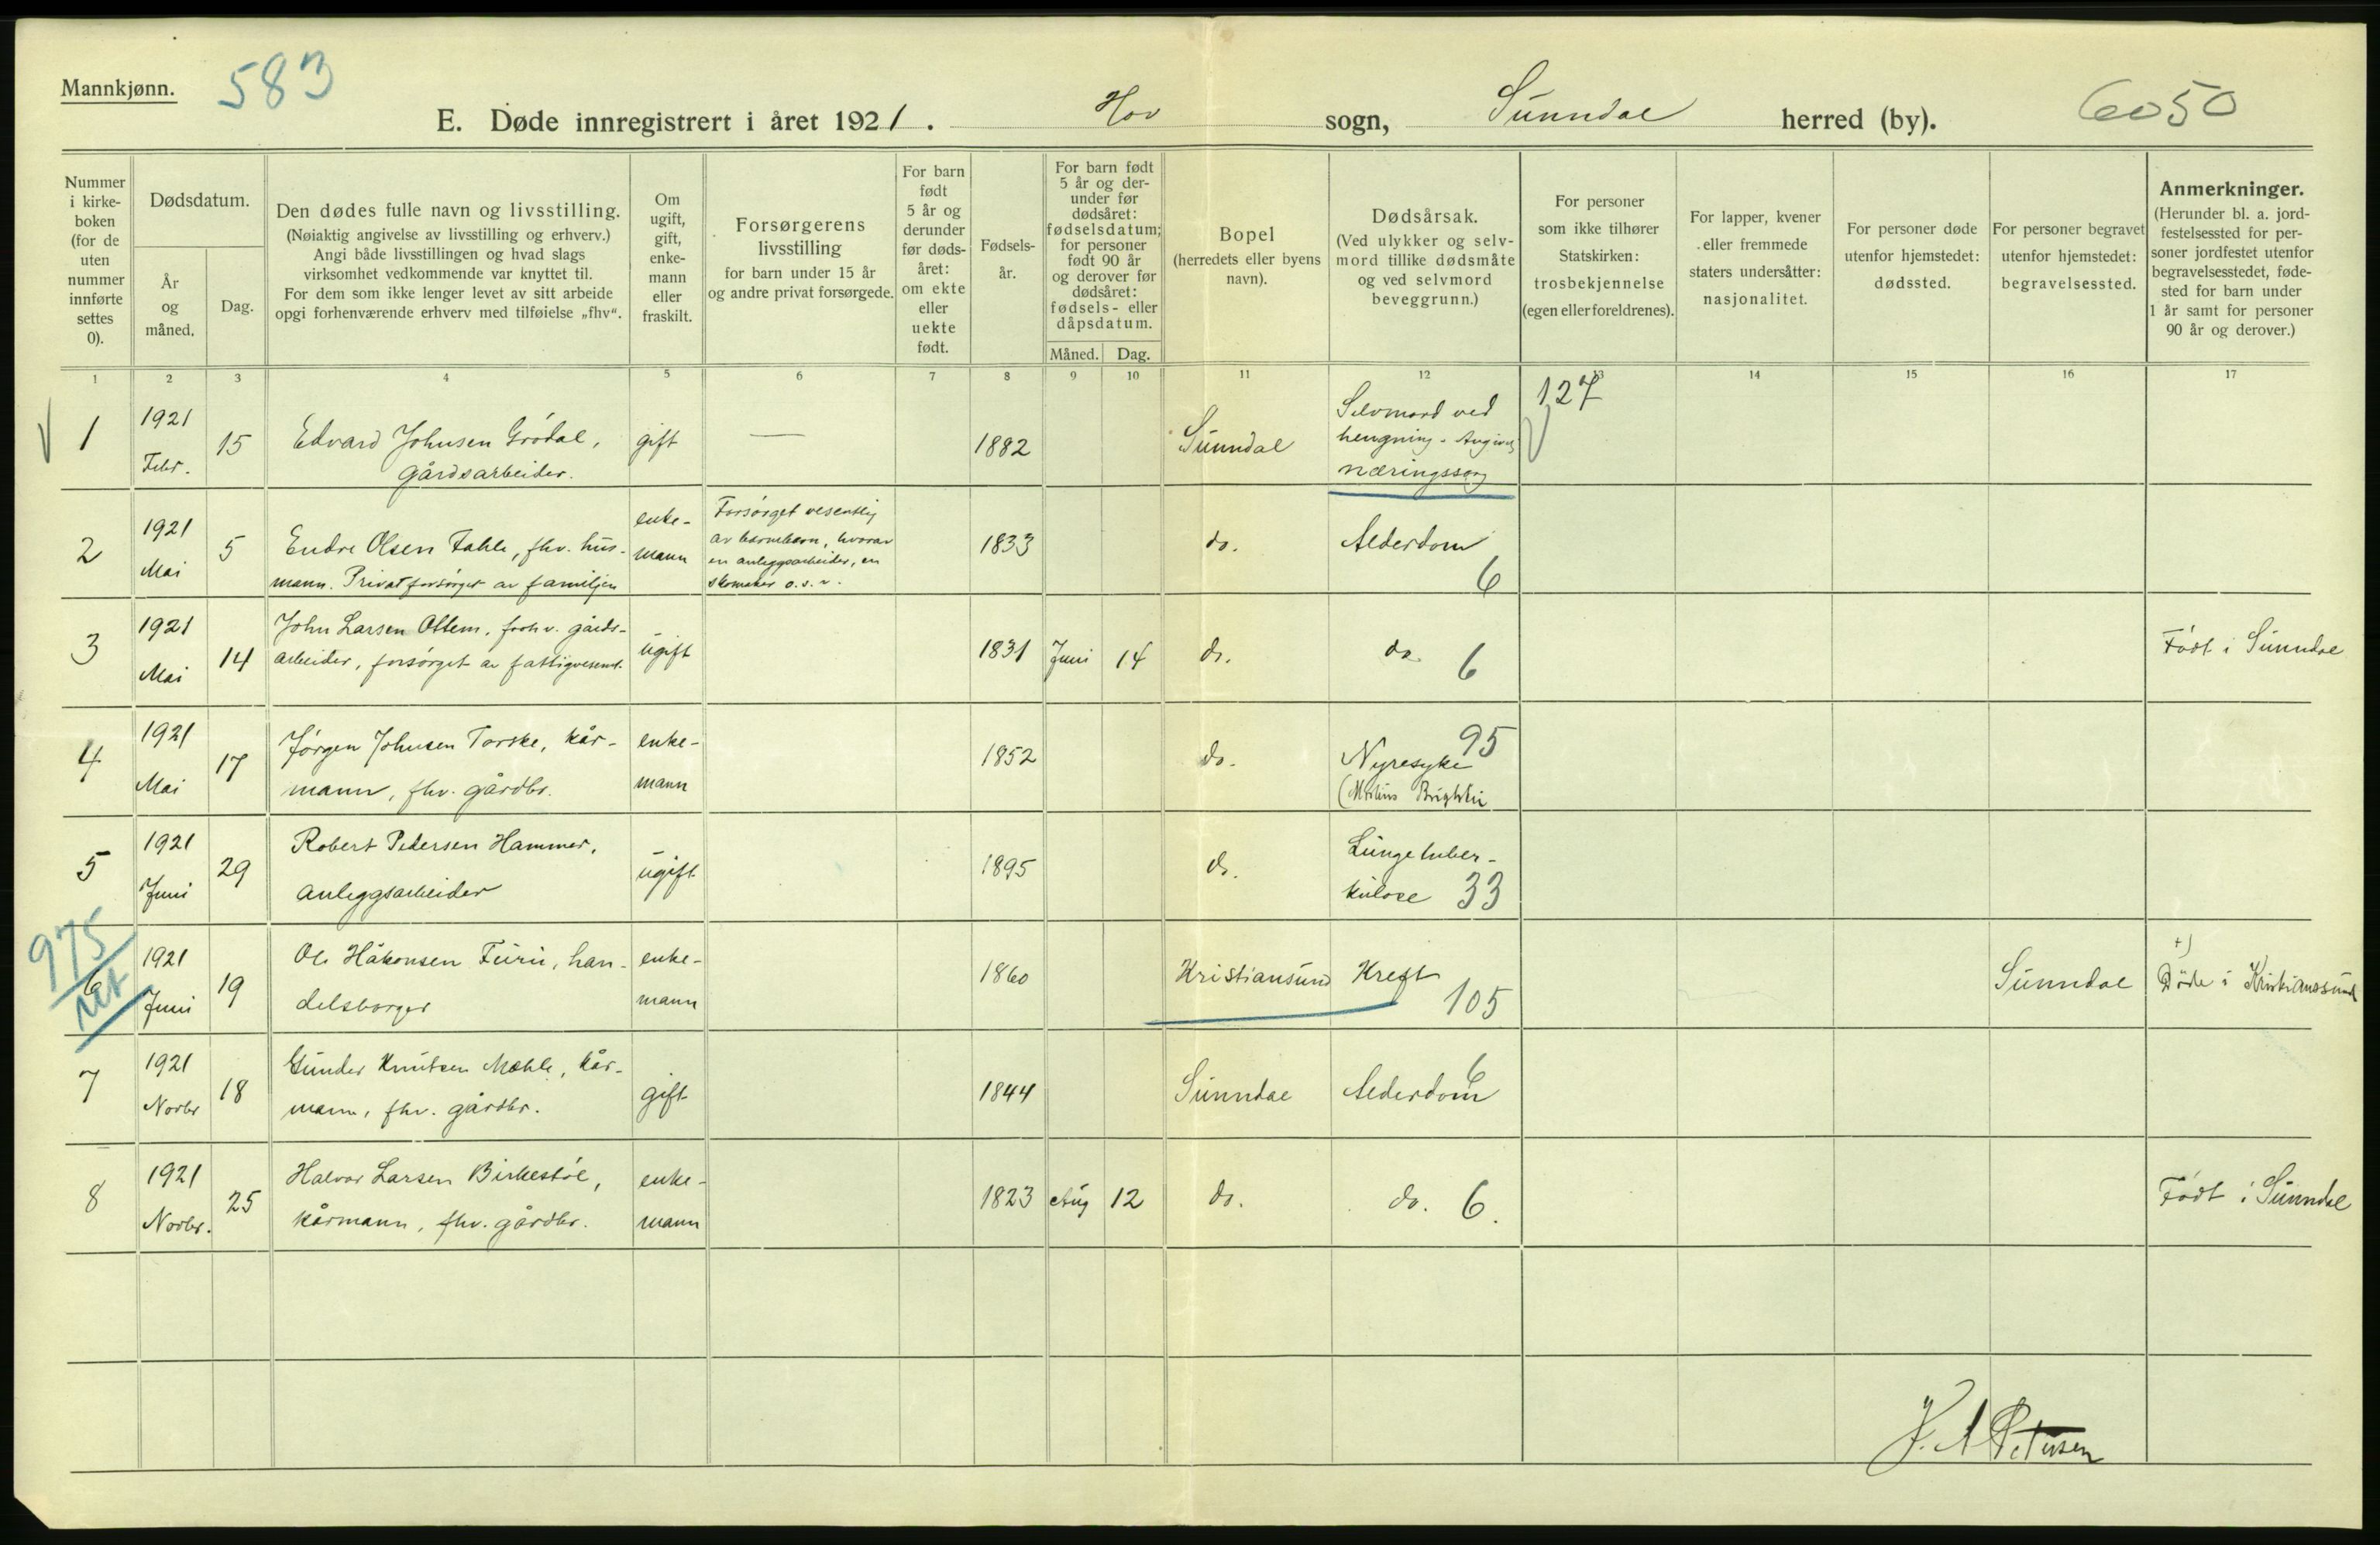 Mannkjønn.
583
E. Døde innregistrert i året 1921. Hov sogn, Sunndal herred (by).
6050
Nummer
i kirke-
boken
(for de
uten
nummer
innførte
settes
0).
Dødsdatum.
År
og
måned.
Dag.
Den dødes fulle navn og livsstilling.
(Nøiaktig angivelse av livsstilling og erhverv.)
Angi både livsstillingen og hvad slags
virksomhet vedkommende var knyttet til.
For dem som ikke lenger levet av sitt arbeide
opgi forhenværende erhverv med tilføielse „fhv“.
Om
ugift,
gift,
enke-
mann
eller
fraskilt.
Forsørgerens
livsstilling
for barn under 15 år
og andre privat forsørgede.
For barn
født
5 år og
derunder
før døds-
året:
om ekte
eller
uekte
født.
Fødsels-
år.
For barn født
5 år og der-
under før
dødsåret:
fødselsdatum;
for personer
født 90 år
og derover før
dødsåret:
fødsels- eller
dåpsdatum.
Måned. Dag.
Bopel
(herredets eller byens
navn).
Dødsårsak.
(Ved ulykker og selv-
mord tillike dødsmåte
og ved selvmord
beveggrunn.)
For personer
som ikke tilhører
Statskirken:
trosbekjennelse
(egen eller foreldrenes).
For lapper, kvener
eller fremmede
staters undersåtter:
nasjonalitet.
For personer døde
utenfor hjemstedet:
dødssted.
For personer begravet
utenfor hjemstedet:
begravelsessted.
Anmerkninger.
(Herunder bl. a. jord-
festelsessted for per-
soner jordfestet utenfor
begravelsesstedet, føde-
sted for barn under
1 år samt for personer
90 år og derover.)
1 2 3 4 5 6 7 8 9 10 11 12 13 14 15 16 17
1
1921
Febr.
15
Edvard Johnsen Grødal,
gårdsarbeider.
gift
—
1882
Sunndal
Selvmord ved
hengning - Angivel
næringssorg
127
2
1921
Mai
5
Endre Olsen Fahle, fhv. hus-
mann. Privat forsørget av familjen
enke-
mann
Forsørget vesentlig
av barnebarn, hvorav
en anleggsarbeider, en
skomaker o.s.v.
1833
do.
Alderdom
6
3
1921
Mai
14
John Larsen Ottem, forhv. gårds-
arbeider, forsørget av fattigvesenet.
ugift
1831
Juni
14
do.
do.
6
Født i Sunndal
4
1921
Mai
17
Jørgen Johnsen Torske, kår-
mann, fhv. gårdbr.
enke-
mann
1852
do.
95
Nyresyke
(Morbus Brightii
5
1921
Juni
29
Robert Pedersen Hammer,
anleggsarbeider
ugift
1895
do.
Lungetuber-
kulose 33
975
6
1921
Juni
19
Ole Håkonsen Furu, han-
delsborger
enke-
mann
1860
Kristiansund
Kreft
105
Sunndal
+)
Døde i Kristiansund
7
1921
Novbr
18
Gunder Knutsen Mæhle, kår-
mann, fhv. gårdbr.
gift
1844
Sunndal
Alderdom
6
8
1921
Novbr.
25
Halvor Larsen Birkestøl,
kårmann, fhv. gårdbr.
enke-
mann
1823
Aug
12
do.
do. 6.
Født i Sunndal
Petersen